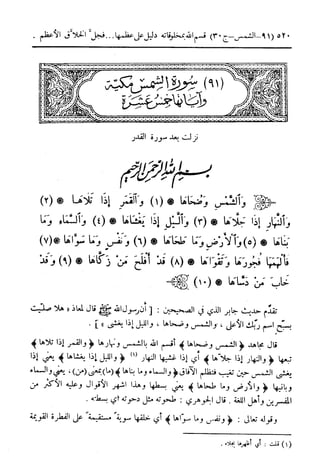 ٥٢٠ (٩١–الشمس–ج٣٠) قسم الله بمخلوقاته دليل على عظمها... فجل الخلاق الأعظم .
(٩١) سورة الشمس مكية
وآياتها خمس عشرة
نزلت بعد سورة القدر
بسم الله الرحمن الرحيم
وَالشَّمْسِ وَضُحَاهَا * (١) وَالْقَمَرِ إِذَا تَلَاهَا * (٢)
وَالنَّهَارِ إِذَا جَلَّاهَا * (٣) وَاللَّيْلِ إِذَا يَغْشَاهَا * (٤) وَالسَّمَاءِ وَمَا
بَنَاهَا * (٥) وَالْأَرْضِ وَمَا طَحَاهَا * (٦) وَنَفْسٍ وَمَا سَوَّاهَا * (٧)
فَأَلْهَمَهَا فُجُورَهَا وَتَقْوَاهَا * (٨) قَدْ أَفْلَحَ مَنْ زَكَّاهَا * (٩) وَقَدْ
خَابَ مَنْ دَسَّاهَا * (١٠)
تقدّم حديث جابر الذي في الصحيحين : [ أن رسول الله ﷺ قال لمعاذ « هلا صليت
بسبّح اسم ربّك الأعلى ، والشمس وضحاها ، والليل إذا يغشى » ] .
قال مجاهد ﴿ الشمس وضحاها ﴾ أقسم الله بالشمس ونهارها ﴿ والقمر إذا تلاها ﴾
تبعها ﴿ والنهار إذا جلاها ﴾ أي إذا غشيها النهار (١) ﴿ والليل إذا يغشاها ﴾ يعني إذا
يغشى الشمس حين تغيب فتظلم الآفاق ﴿ والسماء وما بناها ﴾ (ما) بمعنى (من) ، يعني والسماء
وبانيها ﴿ والأرض وما طحاها ﴾ يعني بسطها وهذا أشهر الأقوال وعليه الأكثر من
المفسرين وأهل اللغة . قال الجوهري : طحوته مثل دحوته أي بسطته .
وقوله تعالى : ﴿ ونفس وما سوّاها ﴾ أي خلقها سوية مستقيمة على الفطرة القويمة
(١) قلت : أي أظهرها بجلاء .